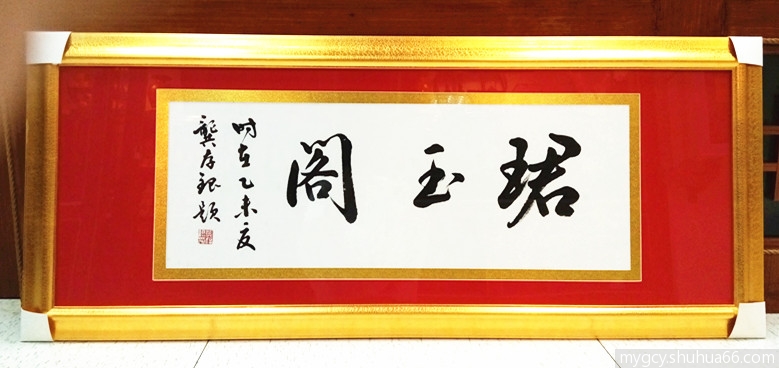 珺玉阁
时在乙未夏
龚存银题
mygcy.shuhua66.com